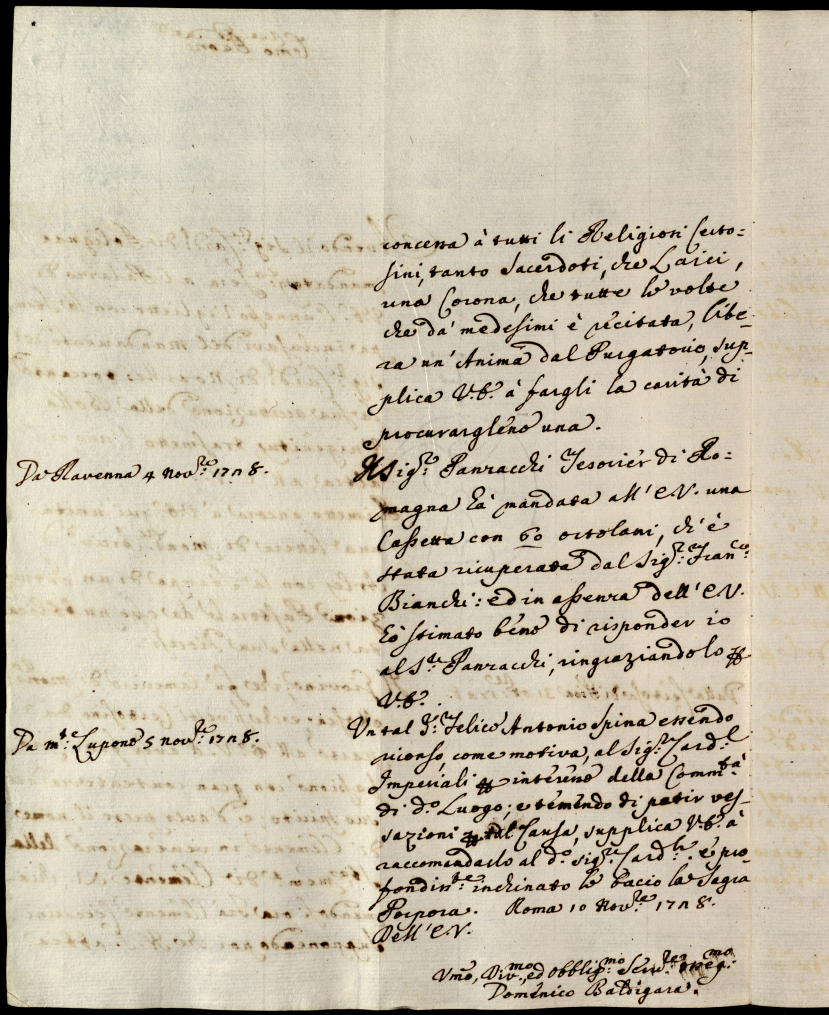 concessa à tutti li Religiosi Certo=
sini, tanto Sacerdoti, che Laici,
una Corona, che tutte le volte
che da' medesimi è recitata, libe=
ra un' Anima dal Purgatorio, sup=
plica V.E. à fargli la carità di
procurargliene una.
Da Ravenna 4 Nov.re 1728.
Il Sig.re Panzacchi Tesorier di Ro=
magna hà mandata all' E.V. una
Cassetta con 60 ortolani, ch' è
stata ricuperata dal Sig.r Fran.co
Bianchi: ed in assenza dell' E.V.
hò stimato bene di risponder io
al S.re Panzacchi, ringraziandolo
V.E.
Da M.te Lupone 5 Nov.re 1728.
Un tal Felice Antonio Spina essendo
ricorso, come motiva, al Sig.r Card.l
Imperiali interesse della Comm.tà
di d.o Luogo; e temendo di patir ves=
sazioni tal Causa, supplica V.E. à
raccomandarlo al d.o Sig.r Card.le. e pro=
fondis.te inchinato le bacio la Sagra
Porpora. Roma 10 Nov.re 1728.
Dell' E.V.
Umo, Div.mo, ed obblig.mo Serv.re
Domenico Baldigara.